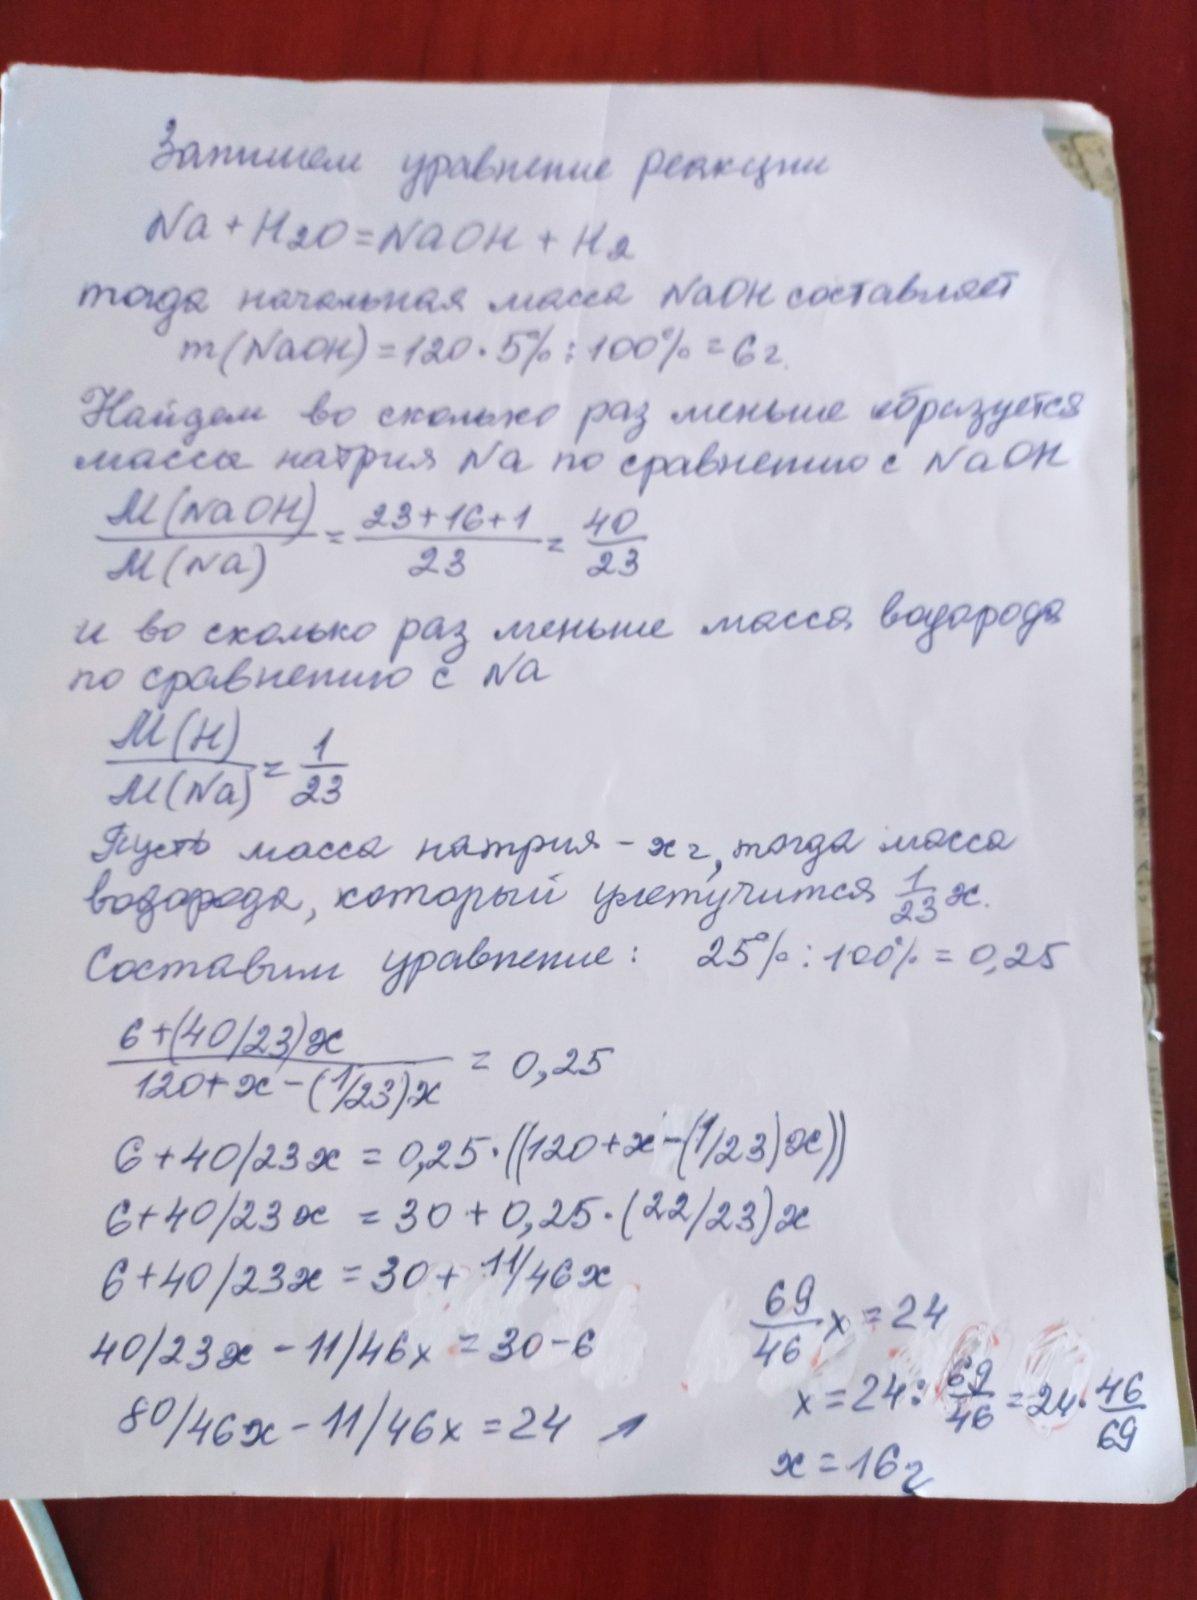 Запишем уравнение реакции
Na + H2O = NaOH + H2
тогда начальная масса NaOH составляет
m(NaOH) = 120 · 5% : 100% = 6 г.
Найдем во сколько раз меньше образуется
массы натрия Na по сравнению с NaOH
M(NaOH)/M(Na) = (23+16+1)/23 = 40/23
и во сколько раз меньше масса водорода
по сравнению с Na
M(H)/M(Na) = 1/23
Пусть масса натрия - x г, тогда масса
водорода, который улетучится 1/23 x.
Составим уравнение: 25% : 100% = 0,25
(6+(40/23)x)/(120+x-(1/23)x) = 0,25
6+40/23x = 0,25·((120+x-(1/23)x))
6+40/23x = 30+0,25·(22/23)x
6+40/23x = 30+ 11/46x
40/23x - 11/46x = 30-6
80/46x - 11/46x = 24
69/46 x = 24
x = 24 : 69/46 = 24 · 46/69
x = 16 г